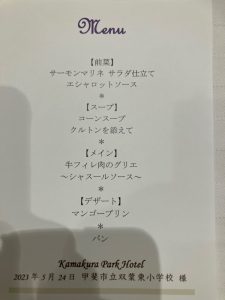 Menu
【前菜】
サーモンマリネ サラダ仕立て
エシャロットソース
*
【スープ】
コーンスープ
クルトンを添えて
*
【メイン】
牛フィレ肉のグリエ
～シャスールソース～
*
【デザート】
マンゴープリン
*
パン
Kamakura Park Hotel
2023 年 5 月 24 日 甲斐市立双葉東小学校 様